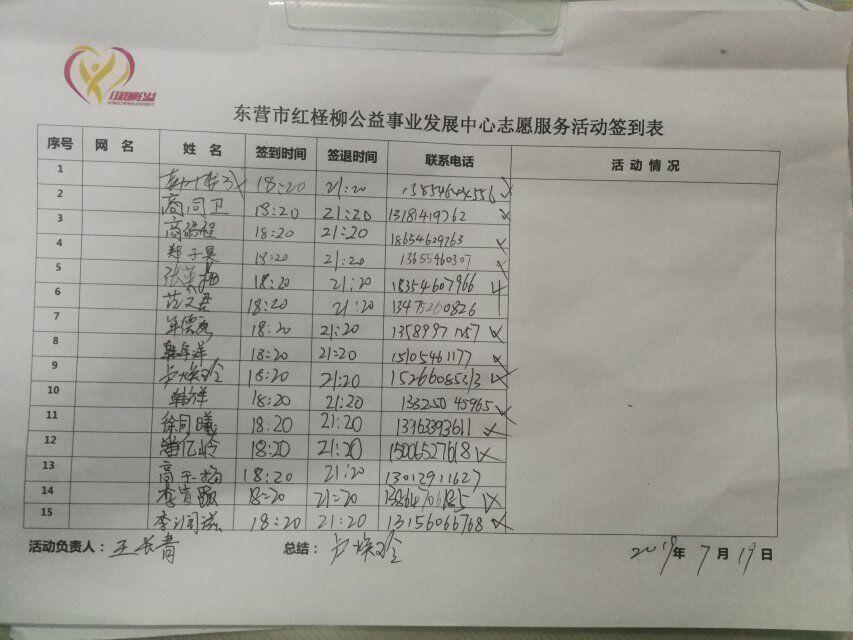 红柽柳公益
东营市红柽柳公益事业发展中心志愿服务活动签到表
序号 网 名 姓 名 签到时间 签退时间 联系电话 活动情况
1 18:20 21:20
2 商同卫 18:20 21:20 13181419762
3 18:20 21:20 18654629763
4 郑子昊 18:20 21:20 13655460307
5 张英梅 18:20 21:20 18354607966
6 范文君 18:20 21:20 13475260826
7 18:20 21:20
8 18:20 21:20 15105461177
9 18:20 21:20 15266085313
10 韩祥 18:20 21:20 13325045965
11 徐同曦 18:20 21:20 13963393611
12 潘亿岭 18:20 21:20 15006527618
13 18:20 21:20 13012911627
14 18:20 21:20 13864706185
15 李润滋 18:20 21:20 13156066768
活动负责人: 王长青 总结: 2019年 7月 19日